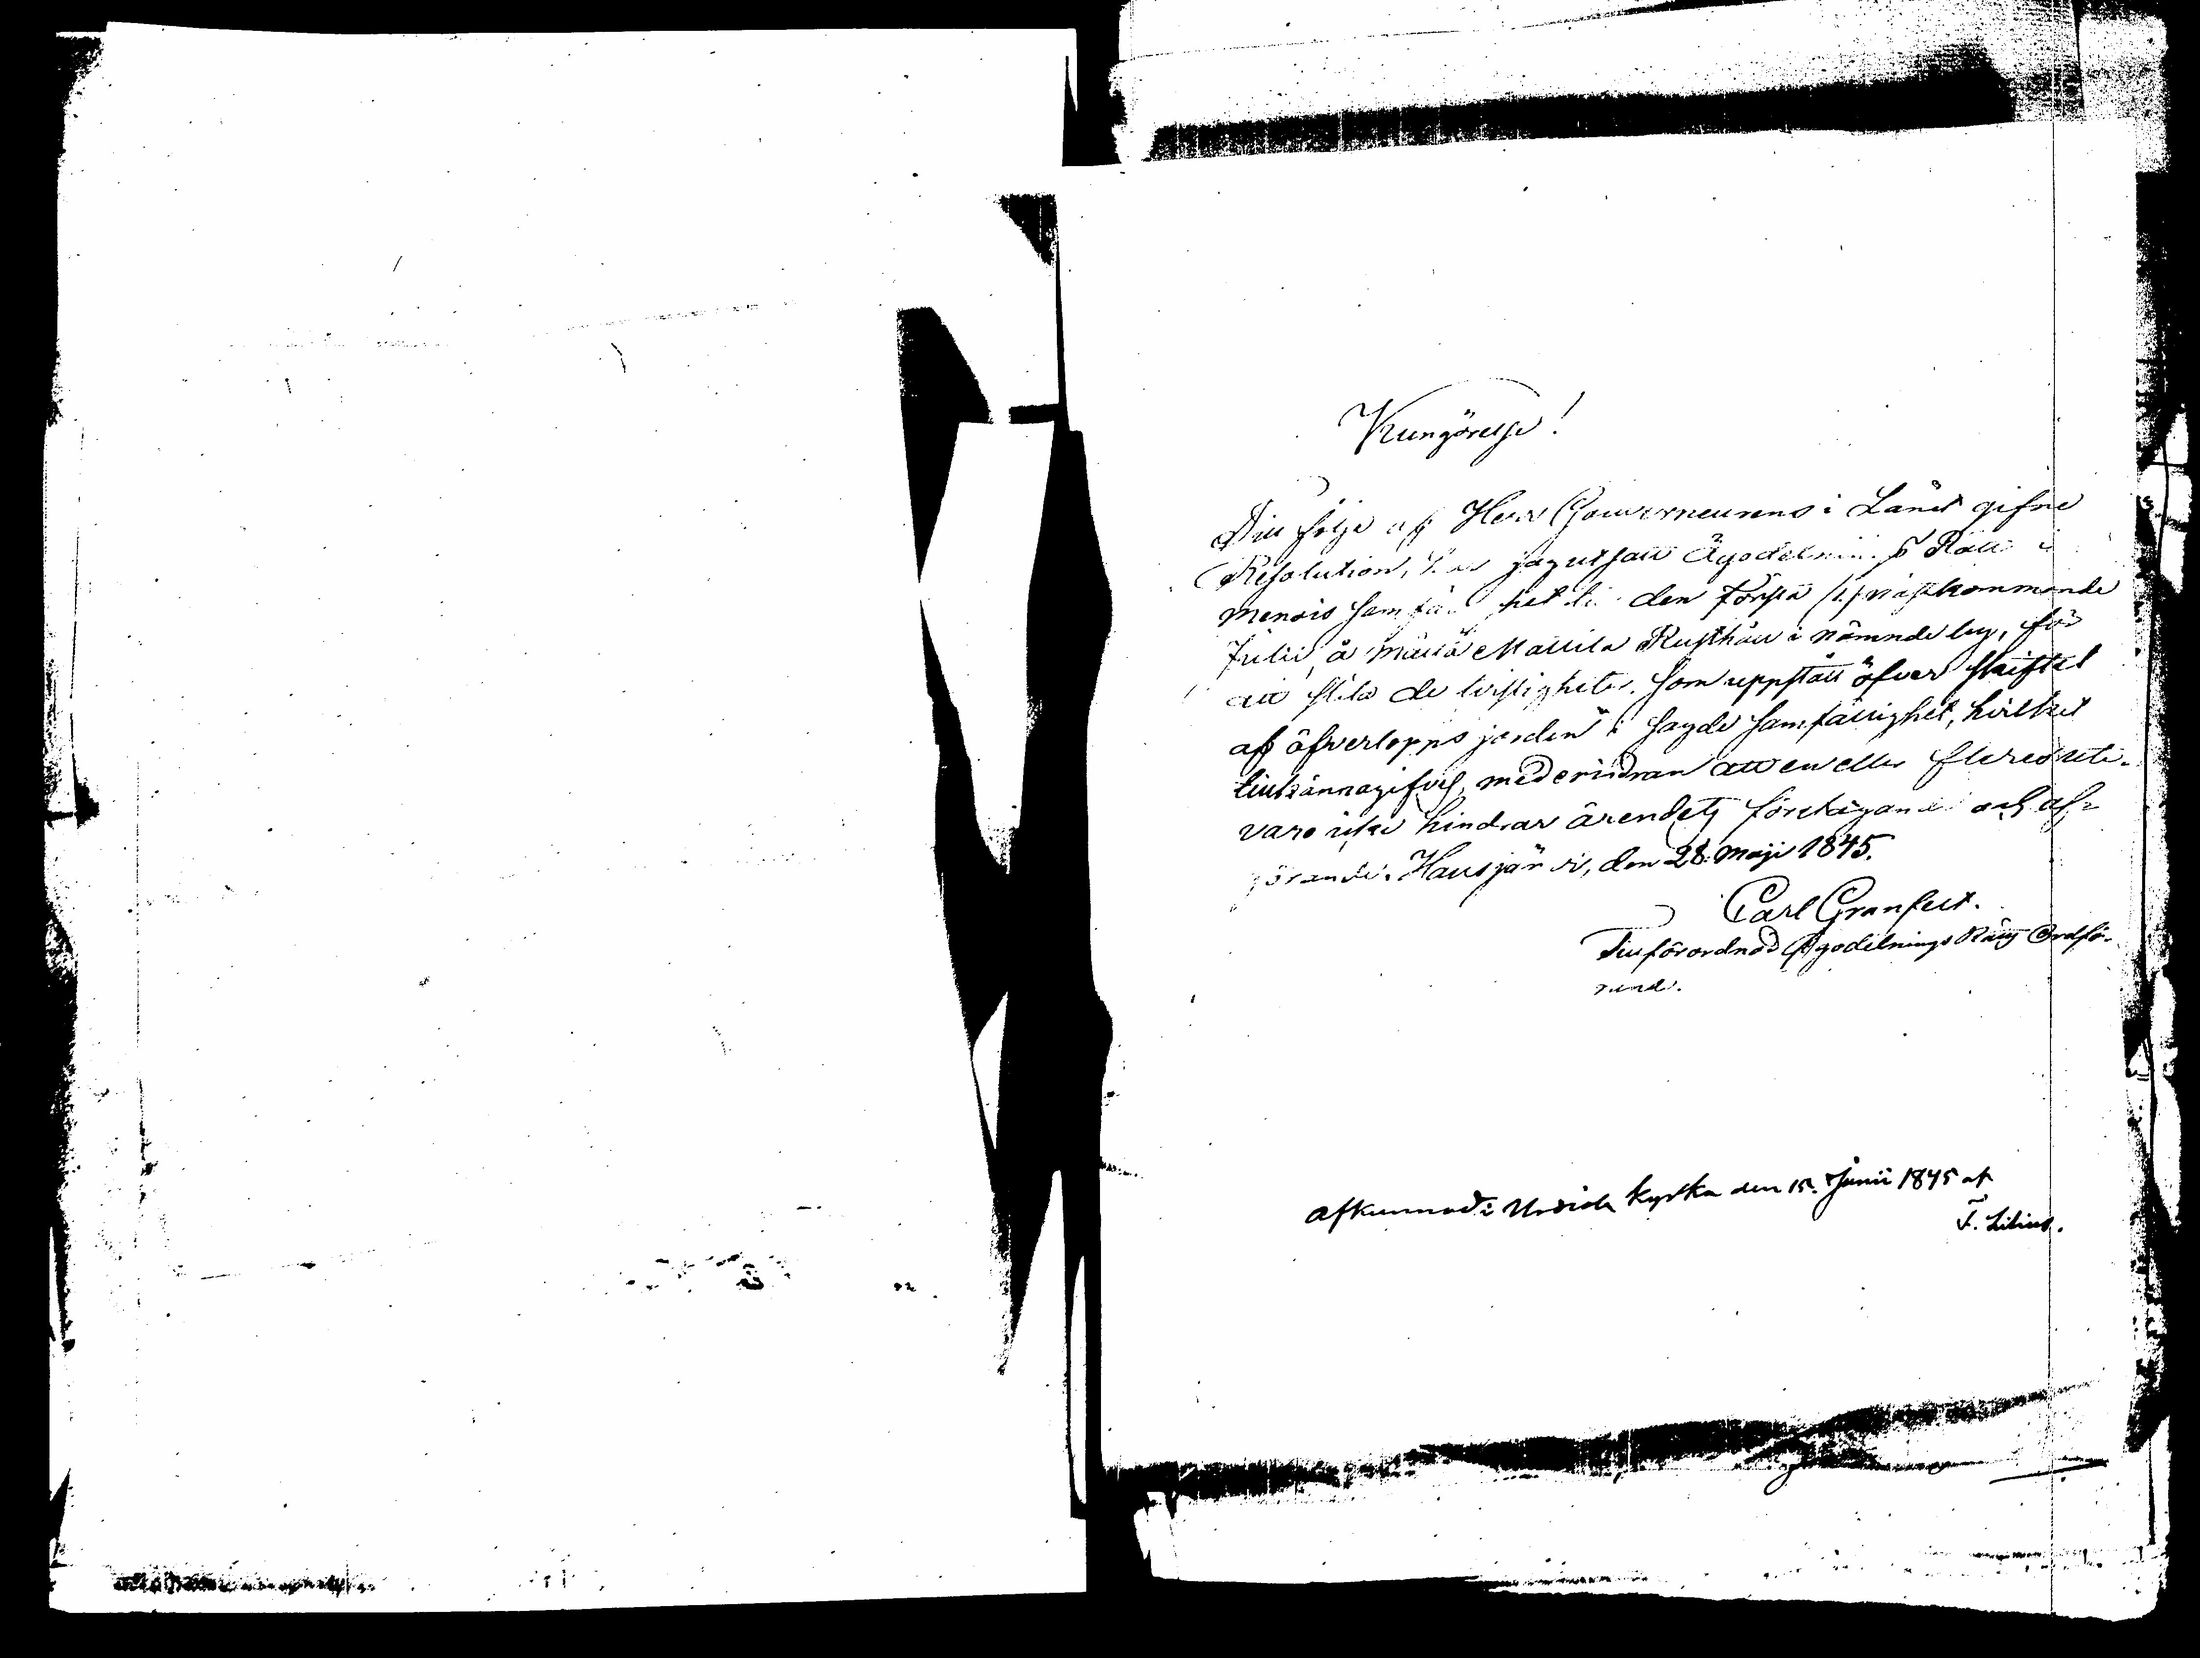 Kungörelse!
Till följe af Herr Gouverneurens i Länet gifne
Resolution, har jag utsatt Ägodelnings Rätt i
mensis samfäl het til den Första /1./ nästkommande
Julii, å Mattila Rusthåll i nämnde by, för
att slita de tvistigheter, som uppstått öfver skiftet
af öfverlopps jorden i sagde samfällighet, hvilket
tillkännagifves, med erindran att en eller fleres ute-
varo icke hindrar ärendets företagande och af-
görande. Hausjärvi, den 28. Maji 1845.
Carl Granfelt.
Tillförordnad Ägodelnings Rätts Ordfö-
rande.
Afkunnad i kyrka den 15. Junii 1845 af
F. Lilius.